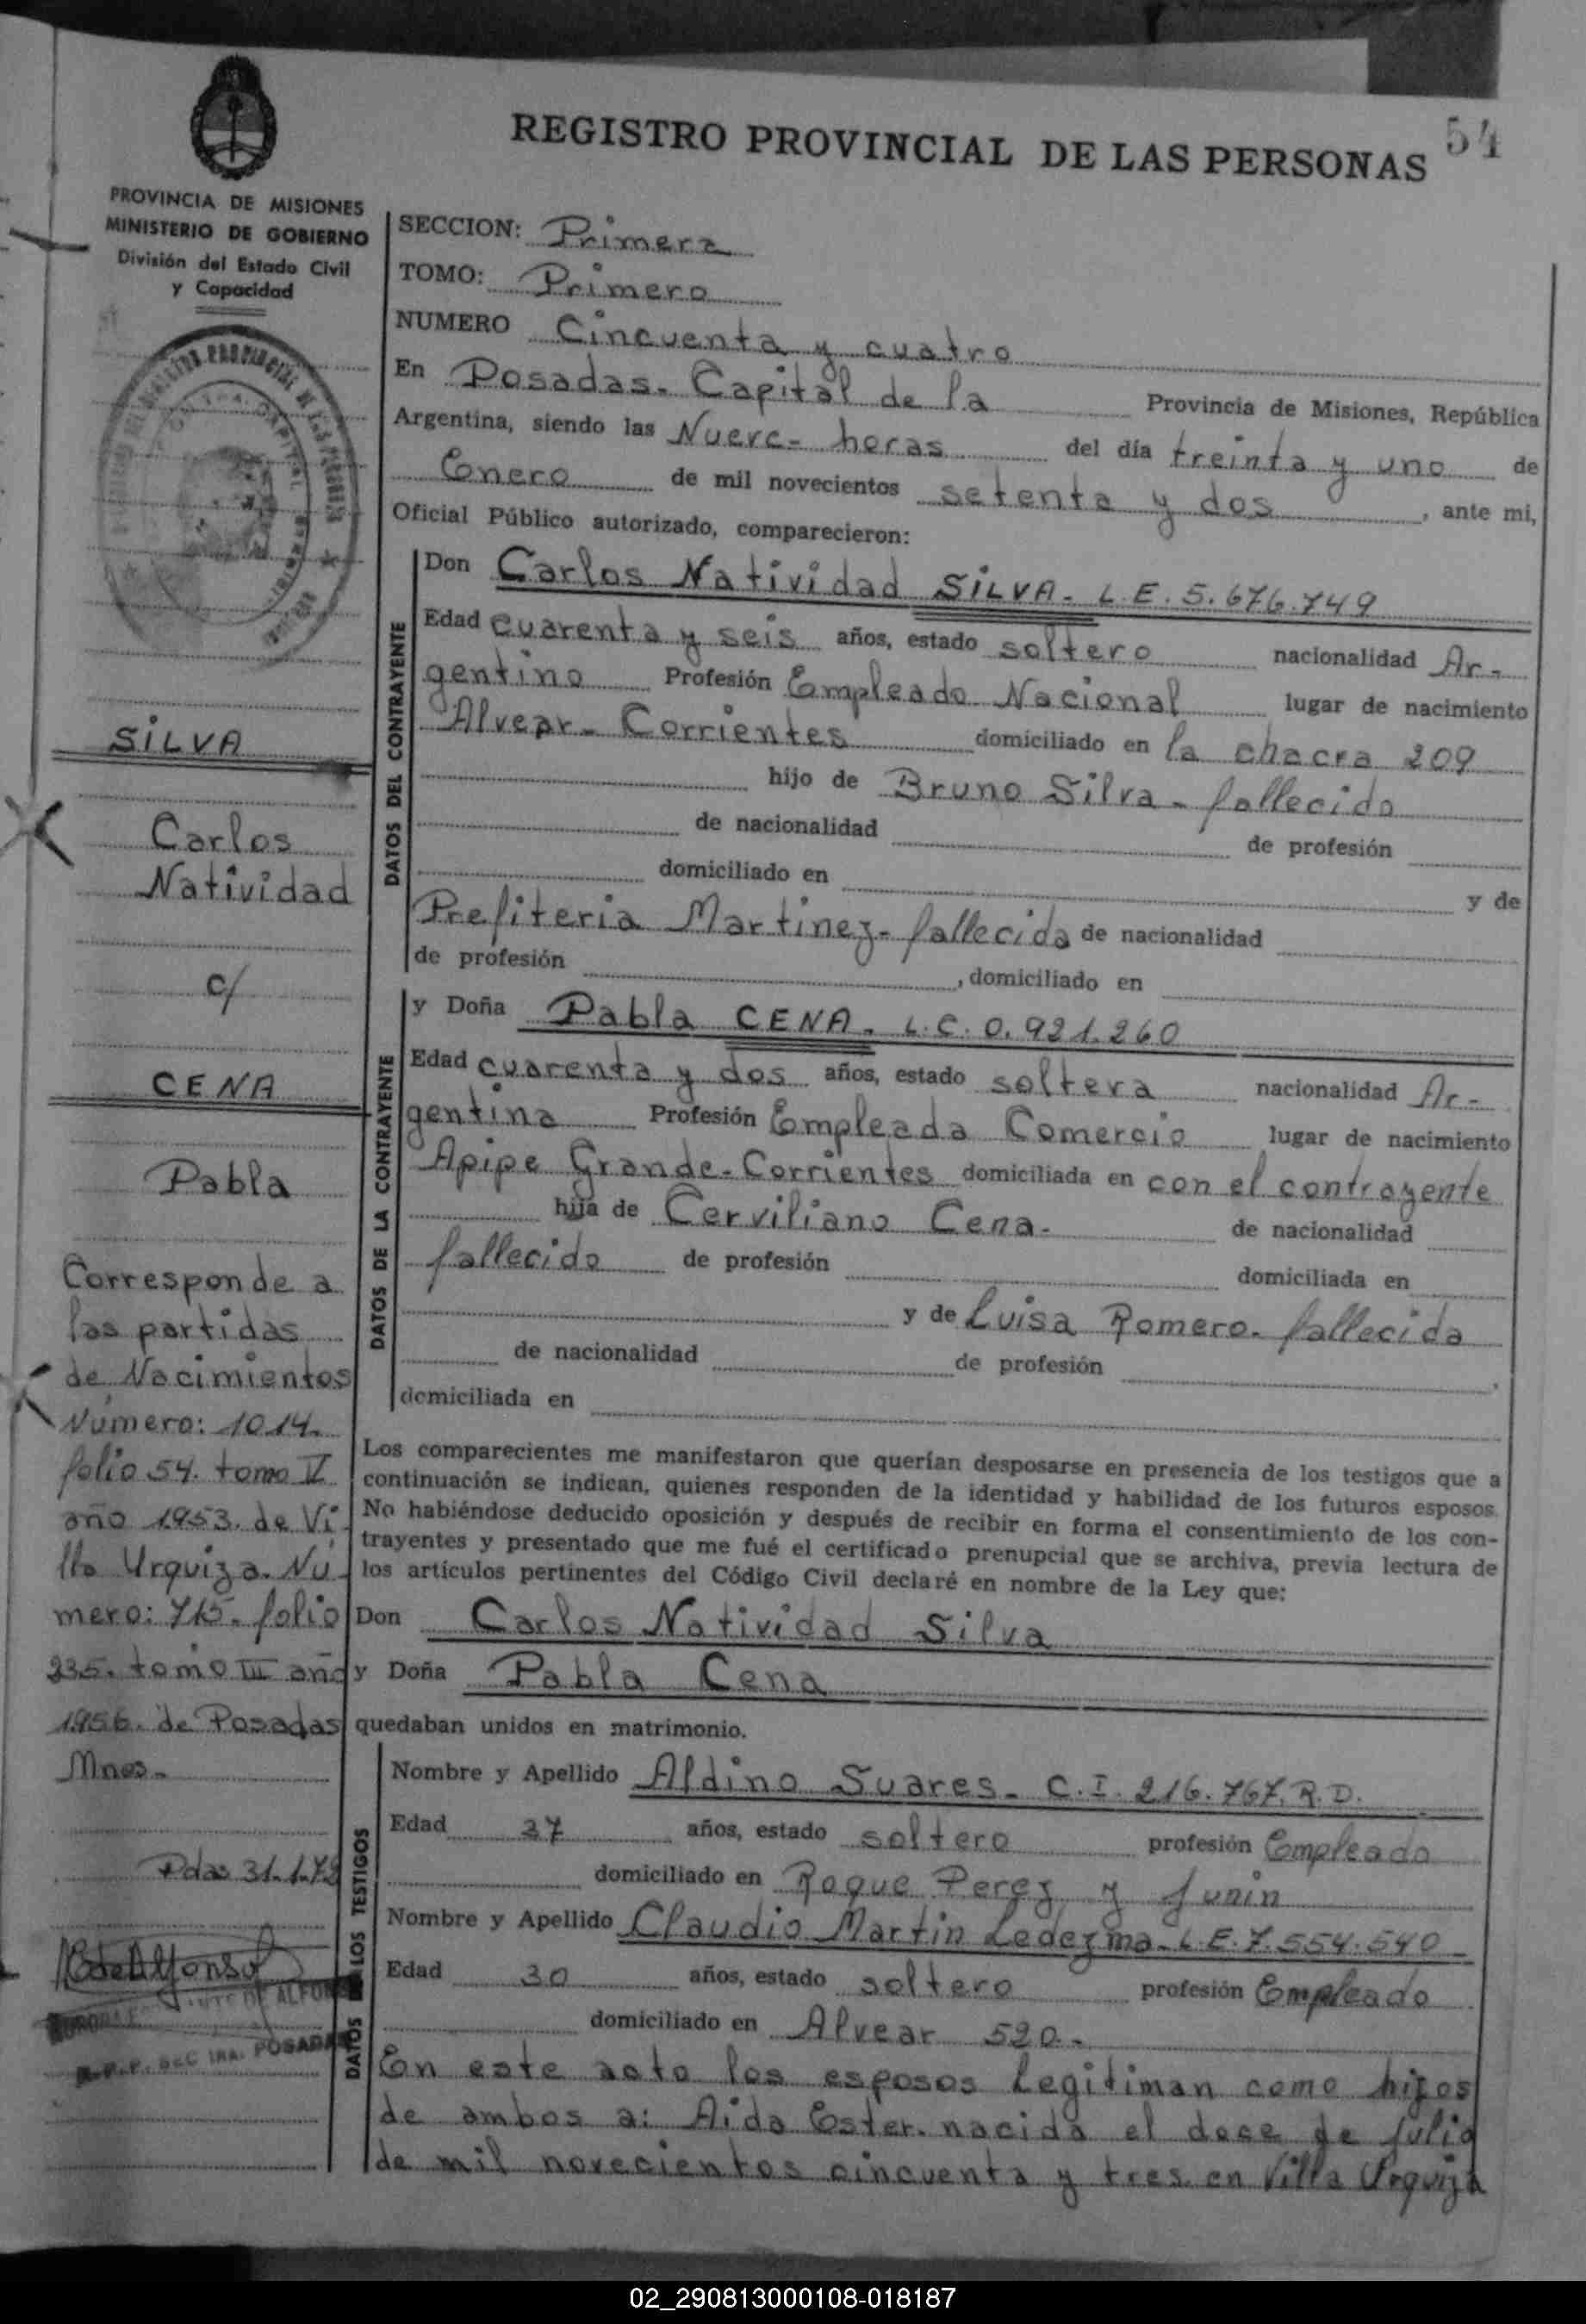 REGISTRO PROVINCIAL DE LAS PERSONAS
54
PROVINCIA DE MISIONES
MINISTERIO DE GOBIERNO
División del Estado Civil
y Capacidad
SECCION: Primera
TOMO: Primero
NUMERO Cincuenta y cuatro
En Posadas- Capital de la Provincia de Misiones, República
Argentina, siendo las Nueve- horas del día treinta y uno de
Enero de mil novecientos setenta y dos, ante mi,
Oficial Público autorizado, comparecieron:
DATOS DEL CONTRAYENTE
Don Carlos Natividad SILVA- L.E. 5.676.749
Edad cuarenta y seis años, estado soltero nacionalidad Ar-
gentino Profesión Empleado Nacional lugar de nacimiento
Alvear- Corrientes domiciliado en la chacra 209
hijo de Bruno Silva- fallecido
de nacionalidad de profesión
domiciliado en y de
Prefiteria Martinez- fallecida de nacionalidad
de profesión , domiciliado en
DATOS DE LA CONTRAYENTE
y Doña Pabla CENA- L.C. 0.921.260
Edad cuarenta y dos años, estado soltera nacionalidad Ar-
gentina Profesión Empleada Comercio lugar de nacimiento
Apipe Grande- Corrientes domiciliada en con el contrayente
hija de Cerviliano Cena- de nacionalidad
fallecido de profesión domiciliada en
y de Luisa Romero- fallecida
de nacionalidad de profesión
domiciliada en
Los comparecientes me manifestaron que querían desposarse en presencia de los testigos que a
continuación se indican, quienes responden de la identidad y habilidad de los futuros esposos.
No habiéndose deducido oposición y después de recibir en forma el consentimiento de los con-
trayentes y presentado que me fué el certificado prenupcial que se archiva, previa lectura de
los artículos pertinentes del Código Civil declaré en nombre de la Ley que:
Don Carlos Natividad Silva
y Doña Pabla Cena
quedaban unidos en matrimonio.
DATOS DE LOS TESTIGOS
Nombre y Apellido Aldino Suares- C.I. 216.767. R.D.
Edad 27 años, estado soltero profesión Empleado
domiciliado en Roque Perez y Junin
Nombre y Apellido Claudio Martin Ledezma- L.E. 7.554.540
Edad 30 años, estado soltero profesión Empleado
domiciliado en Alvear 520-
En este acto los esposos legitiman como hijos
de ambos a: Aida Ester- nacida el doce de julio
de mil novecientos cincuenta y tres en Villa Urquiza
SILVA
Carlos
Natividad
c/
CENA
Pabla
Corresponde a
las partidas
de Nacimientos
Número: 1014-
folio 54. tomo V
año 1953. de Vi-
lla Urquiza. Nú-
mero: 715- folio
235. tomo III año
1956. de Posadas
Mnes-
Pdas 31-1-72
DE ALFONSO
R.P.P. SEC 1RA. POSADAS
02_290813000108-018187